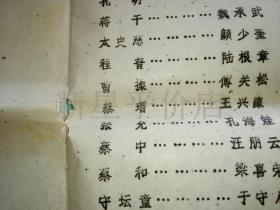 蒋 干………魏承武
太史慈………颜少奎
程 普………陆根章
曹 操………傅关松
蔡 瑁………王兴康
允………孔海娃
蔡 中………汪朋云
蔡 和………梁喜
守坛童………于守